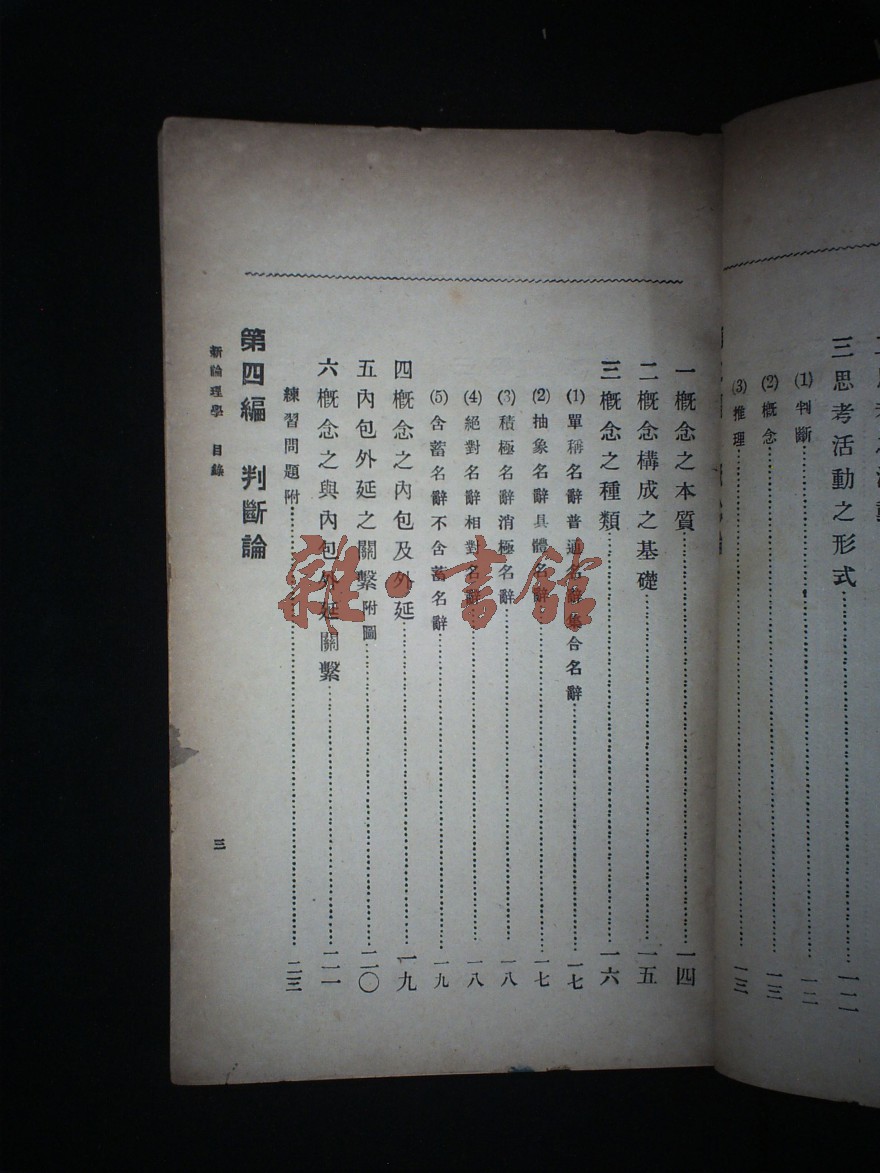 三思考活動之形式……一二
(1)判斷……一二
(2)概念……一三
(3)推理……一三
一概念之本質……一四
二概念構成之基礎……一五
三概念之種類……一六
(1)單稱名辭普通名辭集合名辭……一七
(2)抽象名辭具體名辭……一七
(3)積極名辭消極名辭……一八
(4)絕對名辭相對名辭……一八
(5)含蓄名辭不含蓄名辭……一九
四概念之內包及外延……一九
五內包外延之關繫附圖……二〇
六概念之與內包外延關繫……二一
練習問題附……二三
第四編 判斷論
新論理學 目錄
三
雜·書館